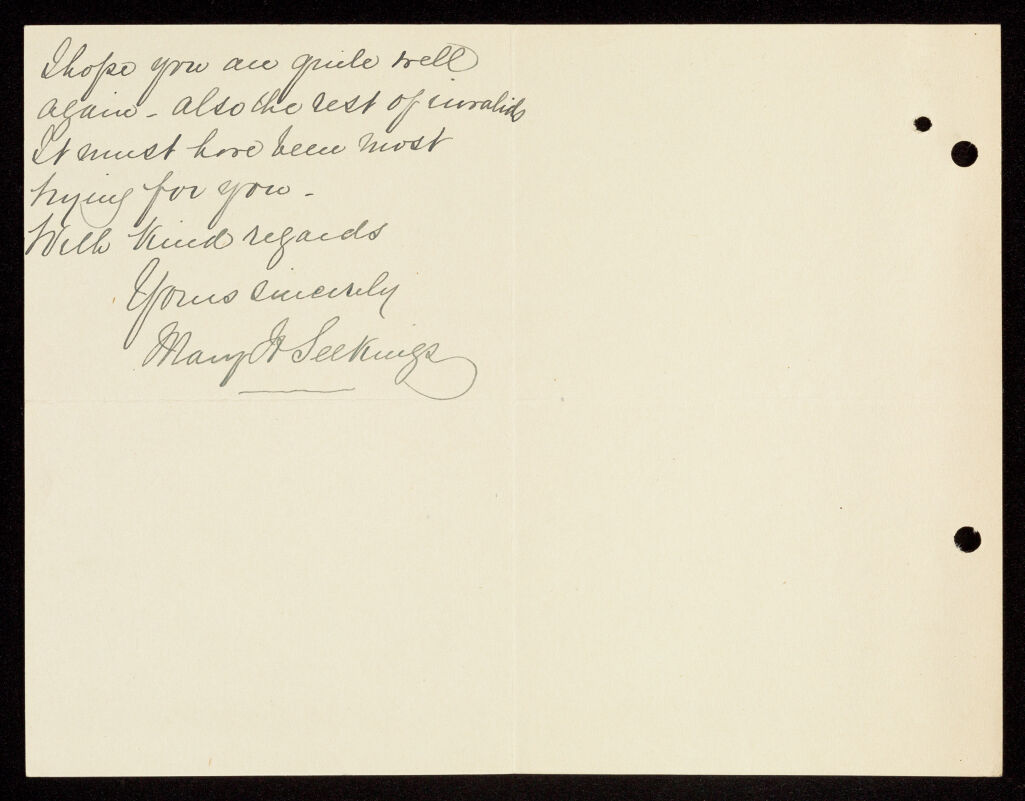 I hope you are quite well
again - also the rest of invalids
It must have been most
trying for you -
With kind regards
Yours sincerely
Mary H Seekings